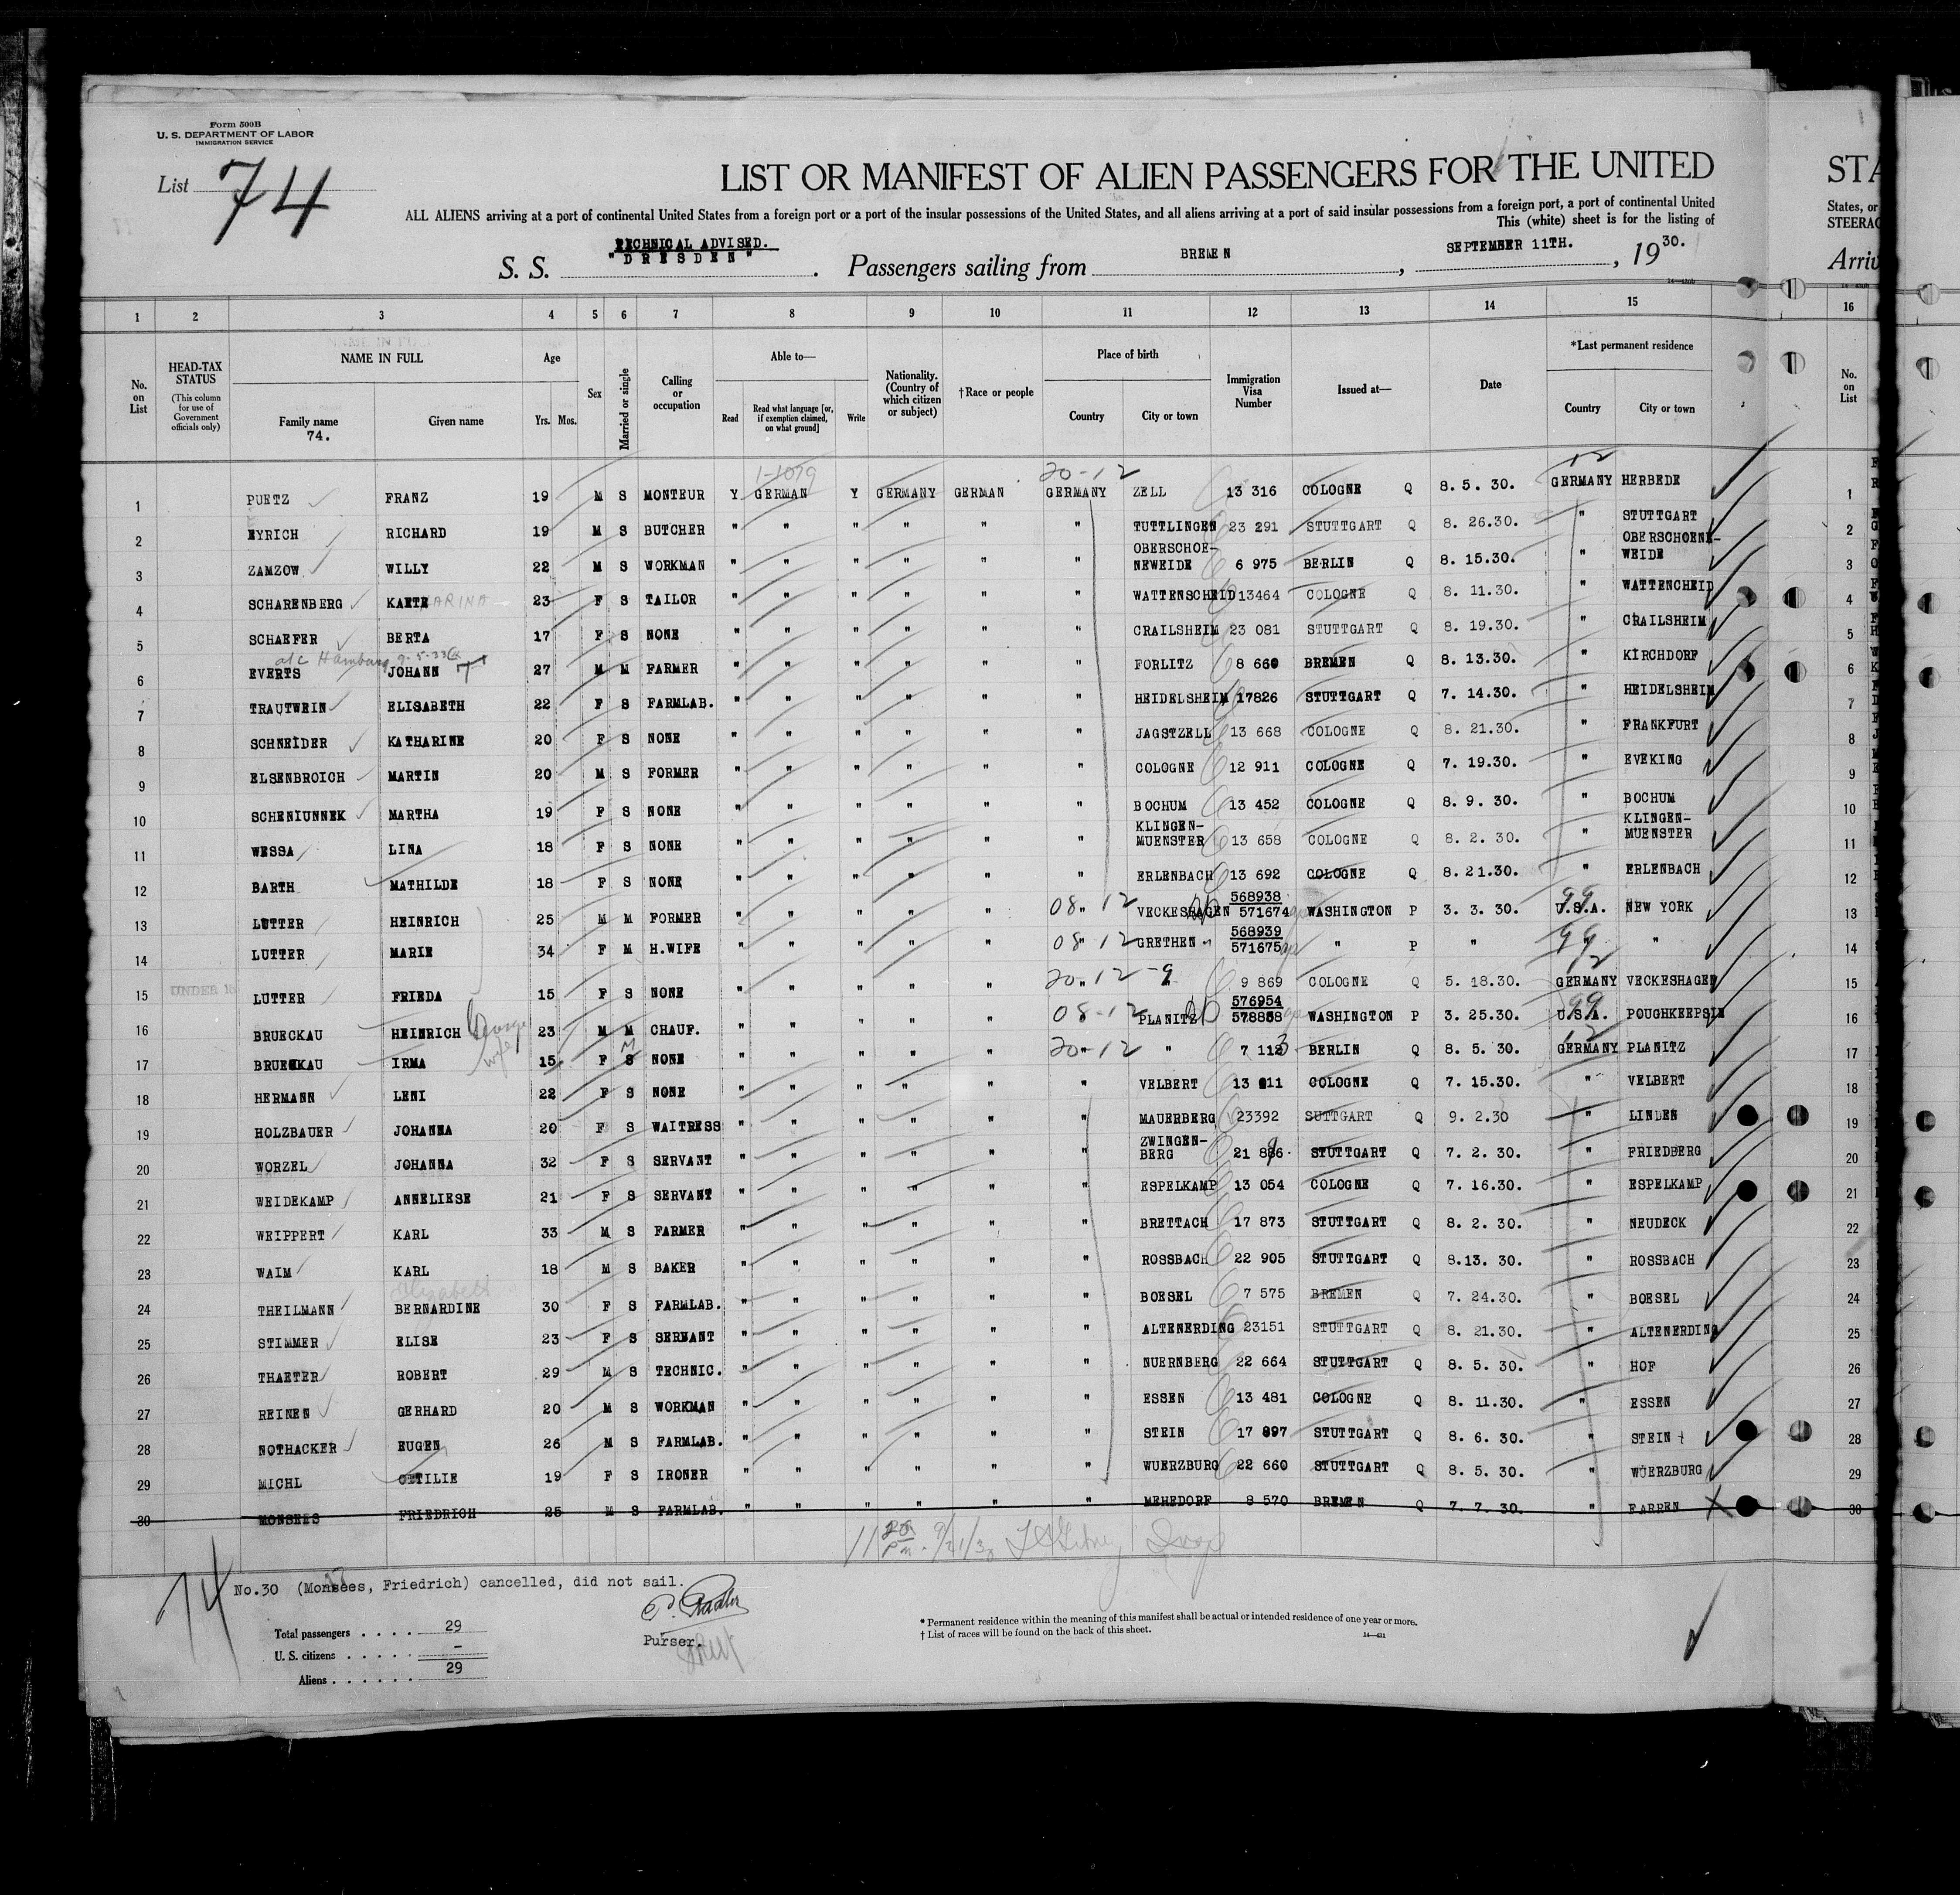 Form 500B
U. S. DEPARTMENT OF LABOR
IMMIGRATION SERVICE
List 74
LIST OR MANIFEST OF ALIEN PASSENGERS FOR THE UNITED
ALL ALIENS arriving at a port of continental United States from a foreign port or a port of the insular possessions of the United States, and all aliens arriving at a port of said insular possessions from a foreign port, a port of continental United
This (white) sheet is for the listing of
TECHNICAL ADVISED.
S. S. "DRESDEN" . Passengers sailing from BREMEN , SEPTEMBER 11TH. , 1930.
STA
States, or
STEERAG
Arriv
1 2 3 4 5 6 7 8 9 10 11 12 13 14 15 16
No. on List
HEAD-TAX STATUS
(This column for use of Government officials only)
NAME IN FULL
Family name
74.
Given name
Age
Yrs. Mos.
Sex
Married or single
Calling or occupation
Able to—
Read
Read what language [or, if exemption claimed, on what ground]
Write
Nationality. (Country of which citizen or subject)
†Race or people
Place of birth
Country
City or town
Immigration Visa Number
Issued at—
Date
*Last permanent residence
Country
City or town
No. on List
1-1079 20-12 12
1 PUETZ FRANZ 19 M S MONTEUR Y GERMAN Y GERMANY GERMAN GERMANY ZELL 13 316 COLOGNE Q 8. 5. 30. GERMANY HERBEDE 1
2 EYRICH RICHARD 19 M S BUTCHER " " " " " " TUTTLINGEN 23 291 STUTTGART Q 8. 26.30. " STUTTGART 2
3 ZAMZOW WILLY 22 M S WORKMAN " " " " " " OBERSCHOE-NEWEIDE 6 975 BERLIN Q 8. 15.30. " OBERSCHOENE-WEIDE 3
4 SCHARENBERG KAETE ARINA 23 F S TAILOR " " " " " " WATTENSCHEID 13464 COLOGNE Q 8. 11.30. " WATTENCHEID 4
5 SCHAEFER BERTA 17 F S NONE " " " " " " CRAILSHEIM 23 081 STUTTGART Q 8. 19.30. " CRAILSHEIM 5
a/c Hamburg 9-5-33
6 EVERTS JOHANN 27 M M FARMER " " " " " " FORLITZ 8 660 BREMEN Q 8. 13.30. " KIRCHDORF 6
7 TRAUTWEIN ELISABETH 22 F S FARMLAB. " " " " " " HEIDELSHEIM 17826 STUTTGART Q 7. 14.30. " HEIDELSHEIM 7
8 SCHNEIDER KATHARINE 20 F S NONE " " " " " " JAGSTZELL 13 668 COLOGNE Q 8. 21.30. " FRANKFURT 8
9 ELSENBROICH MARTIN 20 M S FORMER " " " " " " COLOGNE 12 911 COLOGNE Q 7. 19.30. " EVEKING 9
10 SCHENIUNNEK MARTHA 19 F S NONE " " " " " " BOCHUM 13 452 COLOGNE Q 8. 9. 30. " BOCHUM 10
11 WESSA LINA 18 F S NONE " " " " " " KLINGEN-MUENSTER 13 658 COLOGNE Q 8. 2. 30. " KLINGEN-MUENSTER 11
12 BARTH MATHILDE 18 F S NONE " " " " " " ERLENBACH 13 692 COLOGNE Q 8. 21.30. " ERLENBACH 12
13 LUTTER HEINRICH 25 M M FORMER " " " " " 08-12 VECKESHAGEN 568938 571674 WASHINGTON P 3. 3. 30. 99 U.S.A. NEW YORK 13
14 LUTTER MARIE 34 F M H.WIFE " " " " " 08-12 GRETHEN 568939 571675 " P " 99 " " 14
15 UNDER 16 LUTTER FRIEDA 15 F S NONE " " " " " 20-12 -9 9 869 COLOGNE Q 5. 18.30. 12 GERMANY VECKESHAGEN 15
16 BRUECKAU HEINRICH George 23 M M CHAUF. " " " " " 08-12 PLANITZ 576954 578858 WASHINGTON P 3. 25.30. 99 U.S.A. POUGHKEEPSIE 16
17 BRUECKAU IRMA wife 15 F S M NONE " " " " " 20-12 " 7 113 BERLIN Q 8. 5. 30. 12 GERMANY PLANITZ 17
18 HERMANN LENI 22 F S NONE " " " " " " VELBERT 13 011 COLOGNE Q 7. 15.30. " VELBERT 18
19 HOLZBAUER JOHANNA 20 F S WAITRESS " " " " " " MAUERBERG 23392 SUTTGART Q 9. 2.30 " LINDEN 19
20 WORZEL JOHANNA 32 F S SERVANT " " " " " " ZWINGEN-BERG 21 896. STUTTGART Q 7. 2. 30. " FRIEDBERG 20
21 WEIDEKAMP ANNELIESE 21 F S SERVANT " " " " " " ESPELKAMP 13 054 COLOGNE Q 7. 16.30. " ESPELKAMP 21
22 WEIPPERT KARL 33 M S FARMER " " " " " " BRETTACH 17 873 STUTTGART Q 8. 2. 30. " NEUDECK 22
23 WAIM KARL 18 M S BAKER " " " " " " ROSSBACH 22 905 STUTTGART Q 8.13. 30. " ROSSBACH 23
Elizabeth
24 THEILMANN BERNARDINE 30 F S FARMLAB. " " " " " " BOESEL 7 575 BREMEN Q 7. 24.30. " BOESEL 24
25 STIMMER ELISE 23 F S SERVANT " " " " " " ALTENERDING 23151 STUTTGART Q 8. 21.30. " ALTENERDING 25
26 THAETER ROBERT 29 M S TECHNIC. " " " " " " NUERNBERG 22 664 STUTTGART Q 8. 5. 30. " HOF 26
27 REINEN GERHARD 20 M S WORKMAN " " " " " " ESSEN 13 481 COLOGNE Q 8. 11.30. " ESSEN 27
28 NOTHACKER EUGEN 26 M S FARMLAB. " " " " " " STEIN 17 897 STUTTGART Q 8. 6. 30. " STEIN 28
29 MICHL OTTILIE 19 F S IRONER " " " " " " WUERZBURG 22 660 STUTTGART Q 8. 5. 30. " WUERZBURG 29
30 MONSEES FRIEDRICH 25 M S FARMLAB. " " " " " " MEHEDORF 8 570 BREMEN Q 7. 7. 30. " FARREN 30
9/21/30
74
No.30 (Monsees, Friedrich) cancelled, did not sail.
Total passengers . . . . 29
U. S. citizens . . . . . –
Aliens . . . . . . 29
Purser.
* Permanent residence within the meaning of this manifest shall be actual or intended residence of one year or more.
† List of races will be found on the back of this sheet.